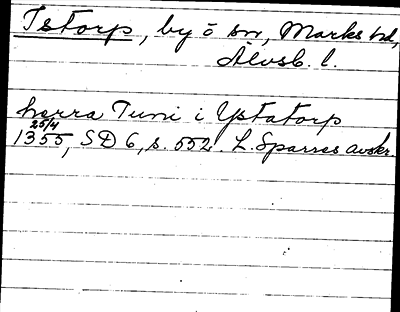 Istorp, by o sn, Marks hd,
Älvsb. l.
herra Tuni i Ystatorp
25/4
1355, SD 6, s. 552. L. Sparres avskr.